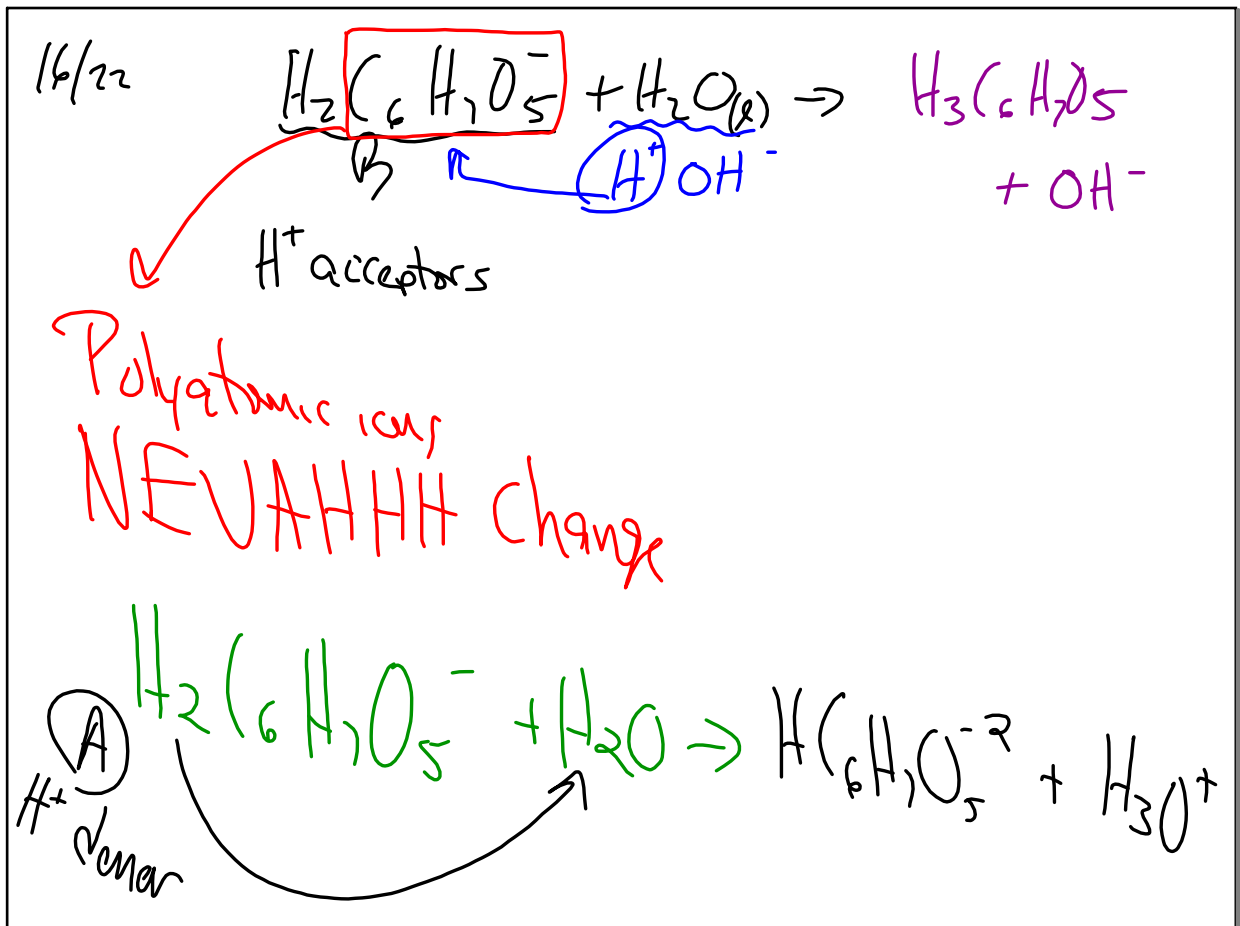 16/22 H₂C₆H₇O₅⁻ + H₂O(l) → H₃C₆H₇O₅
B H⁺ OH⁻ + OH⁻
H⁺ acceptors
Polyatomic ions
NEVAHHH change
H₂C₆H₇O₅⁻ + H₂O → HC₆H₇O₅⁻² + H₃O⁺
A
H⁺ donor